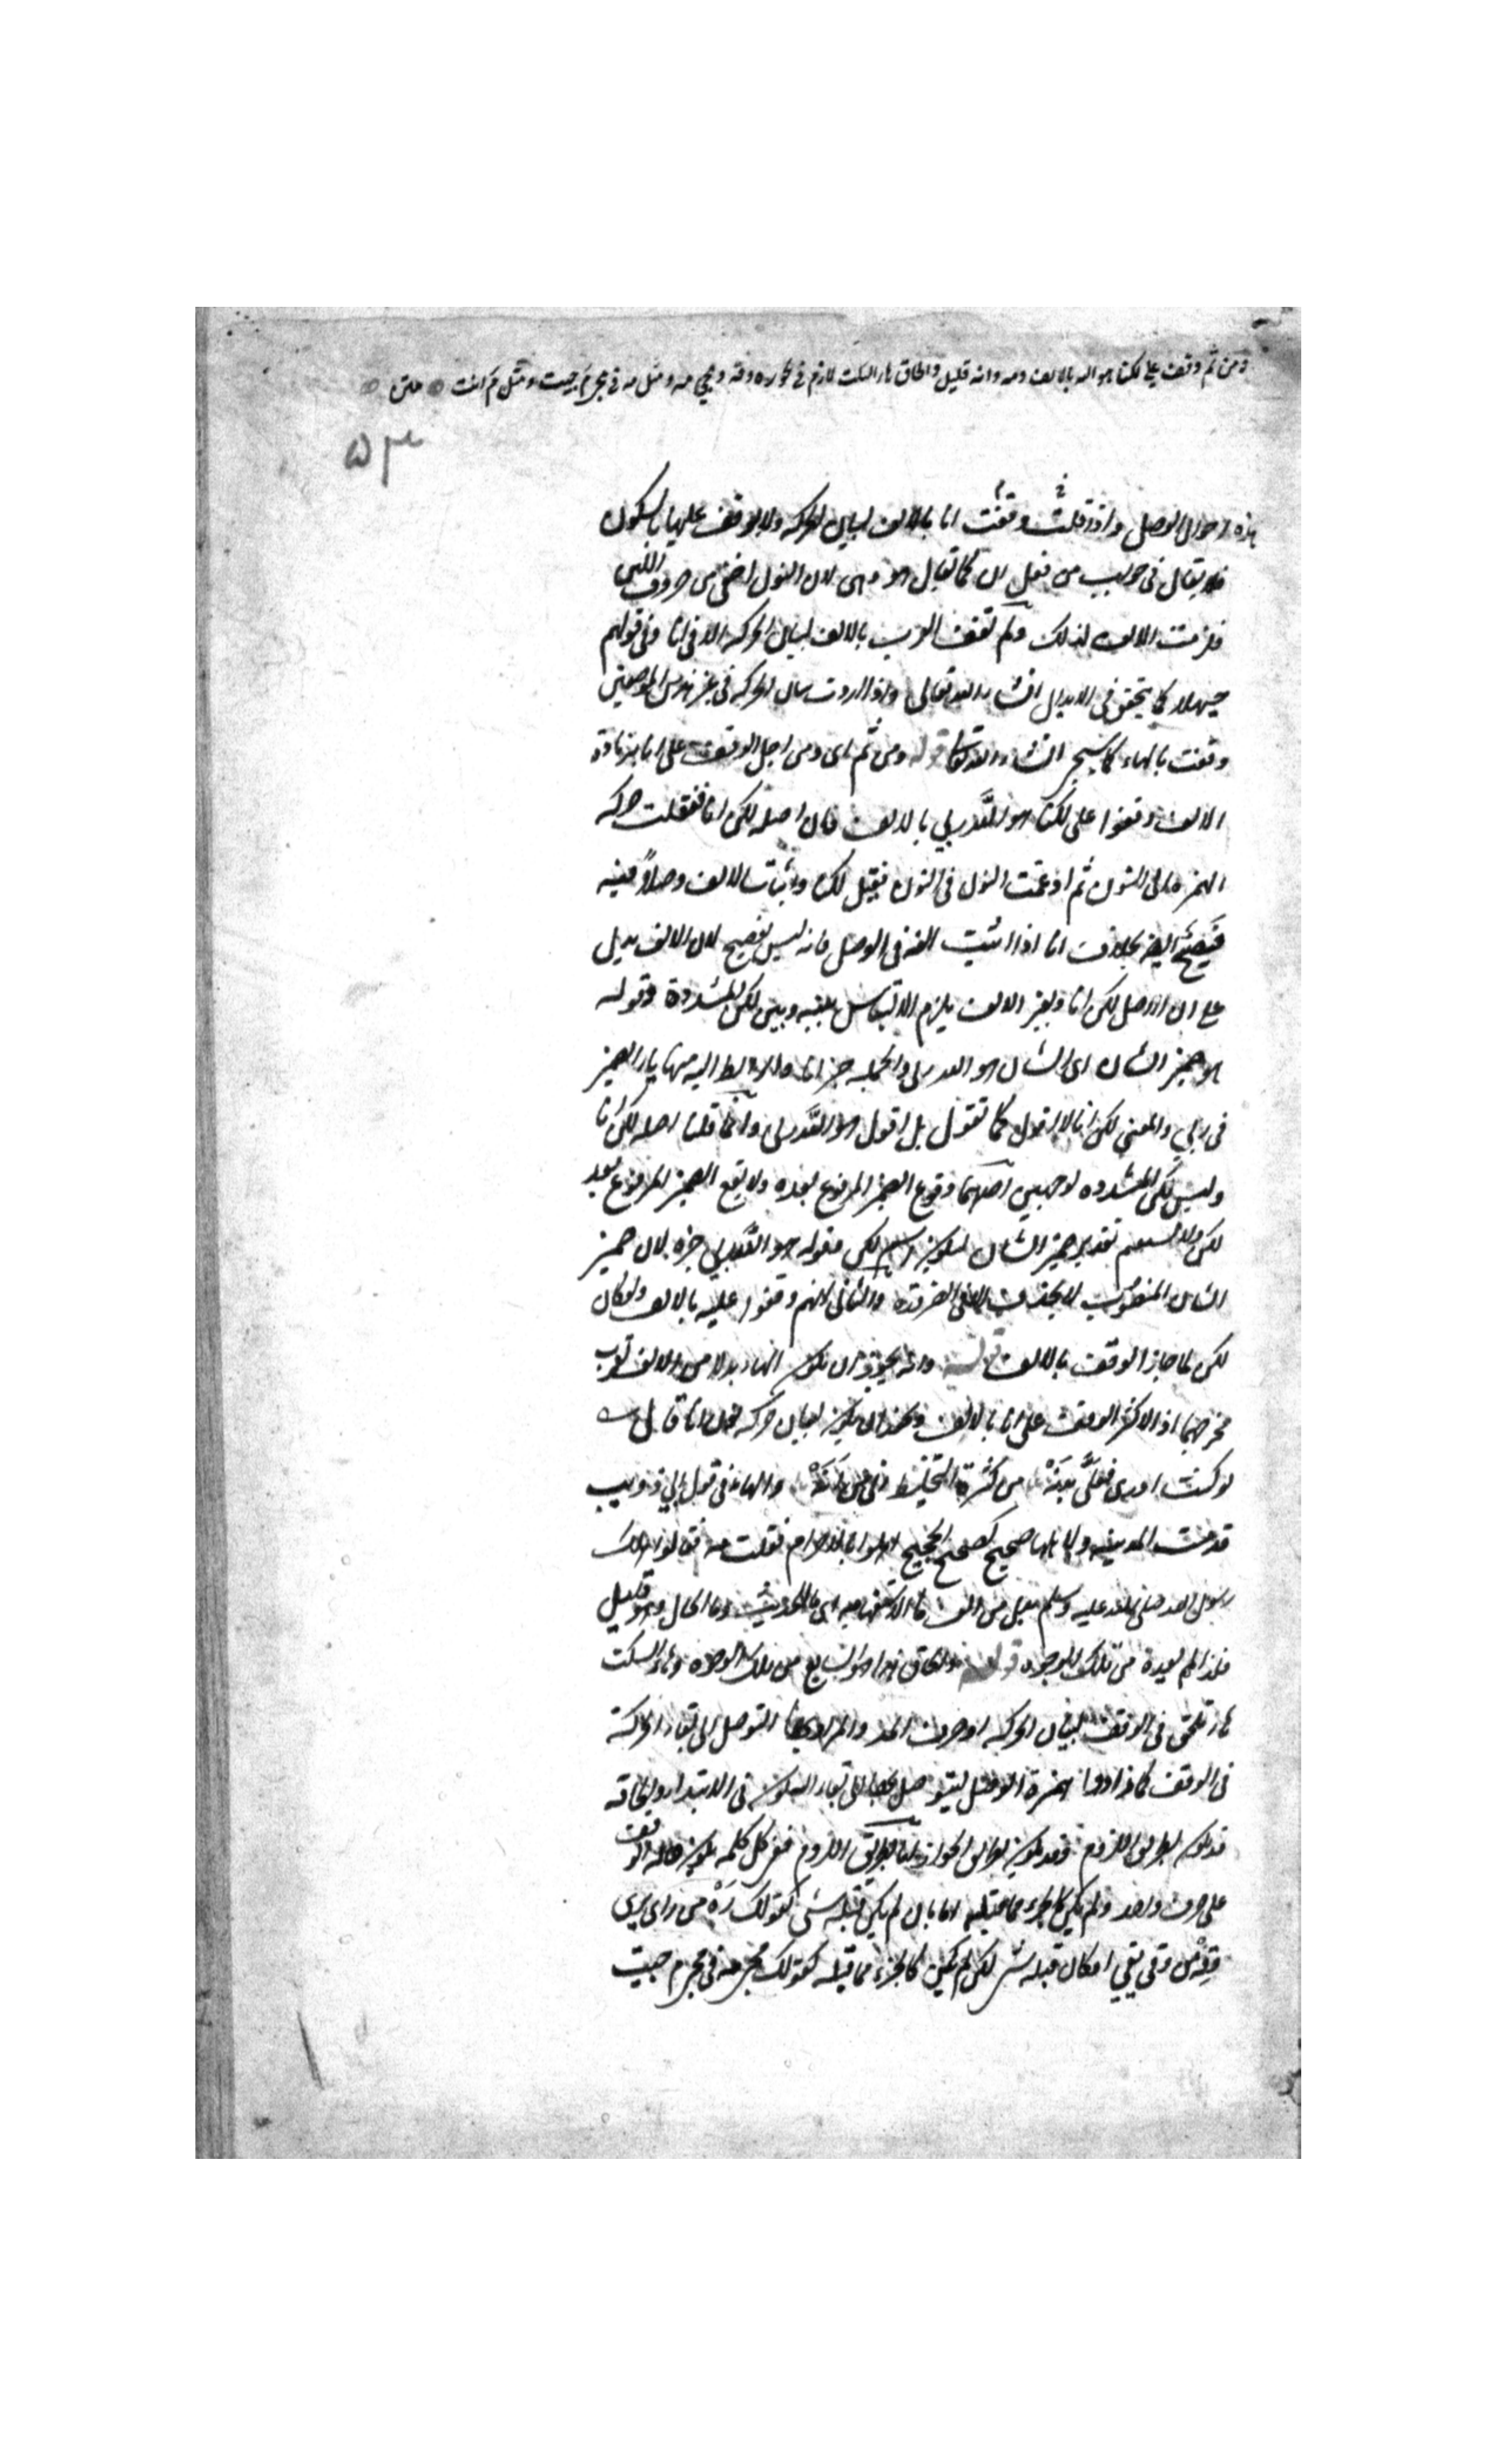 ومن ثم وقف على لكنا هو الله بالالف ومه وانه قليل والحاق هاء السكت لازم فى نحو ره وقه ومجئ مه ومثل مه فى مجئ م جئت ومثل م انت متن
٥٣
هذه احوال الوصل واذا وقفت وقفت انا بالالف لبيان الحركه ولا يوقف عليها بالسكون
فلا يقال فى جواب من فعل ان كما يقال هو وهى لان النون اخفى من حروف اللين
فلزمت الالف لذلك ولم تقف العرب بالالف لبيان الحركه الا فى انا وفى قولهم
حيهلا كما يتحقق فى الابدال ان شاء الله تعالى واذا اردت بيان الحركه فى غير هذين الموضعين
وقفت بالهاء كما سيجئ ان شاء الله تعالى قوله ومن ثم اى ومن اجل الوقف على انا بزيادة
الالف وقفوا على لكنا هو الله ربى بالالف فان اصله لكن انا فنقلت حركه
الهمزه الى النون ثم ادغمت النون فى النون فقيل لكنا واثبات الالف وصلاً فيه
فصيح ايضا بخلاف انا اذا اثبت الفه فى الوصل فانه ليس بفصيح لان الالف يدل
على ان الاصل لكن انا وبغير الالف يلزم الالتباس بينه وبين لكن المشددة وقوله
هو ضمير الشان اى الشان هو الله ربى والجمله خبر انا والرابط اليه منها ياء الضمير
فى ربي والمعنى لكن انا لا اقول كما تقول بل اقول هو الله ربى وانما قلنا اصله لكن انا
وليس لكن المشدده لوجهين احدهما وقوع الضمير المرفوع بعده ولا يقع الضمير المرفوع بعد
لكن ولا يستقيم تقدير ضمير الشان ليكون اسم لكن وقوله هو الله ربى خبره لان ضمير
الشان المنصوب لا يحذف الا فى الضرورة والثانى انهم وقفوا عليه بالالف ولو كان
لكن لما جاز الوقف بالالف قوله وانه يجوز ان يكون الهاء بدلا من الالف لقرب
مخرجهما اذ الاكثر الوقف على انا بالالف ويجوز ان يكون لبيان حركه نون انا قال
لو كنت ادرى فعلىّ بدنه من كثرة التخليط فى من انه والهاء فى قول ابي ذويب
قدمت المدينه ولاهلها ضجيج كضجيج الحجيج اهلوا بالاحرام فقلت مه فقالوا هلك
رسول الله صلى الله عليه وسلم بدل من الف ما الاستفهاميه اى ما الحديث وما الحال وهو قليل
فلذا لم يعده من تلك الوجوه قوله والحاق هذا هو السابع من تلك الوجوه وهاء السكت
هاء تلحق فى الوقف لبيان الحركه او حرف المد والمراد بها التوصل الى بقاء الحركة
فى الوقف كما زادوا همزة الوصل ليتوصل بها الى بقاء السكون فى الابتداء والحاقه
قد يكون بطريق اللزوم وقد يكون بطريق الجواز اما بطريق اللزوم ففى كل كلمه يكون حاله الوقف
على حرف واحد ولم يكن كالجزء مما قبله اما بان لم يكن قبله شئ كقولك رَهْ من راى يرى
وقِهْ من وقى يقى او كان قبله شئ لكن لم يكن كالجزء مما قبله كقولك مجئ مه فى مجئ م جئت